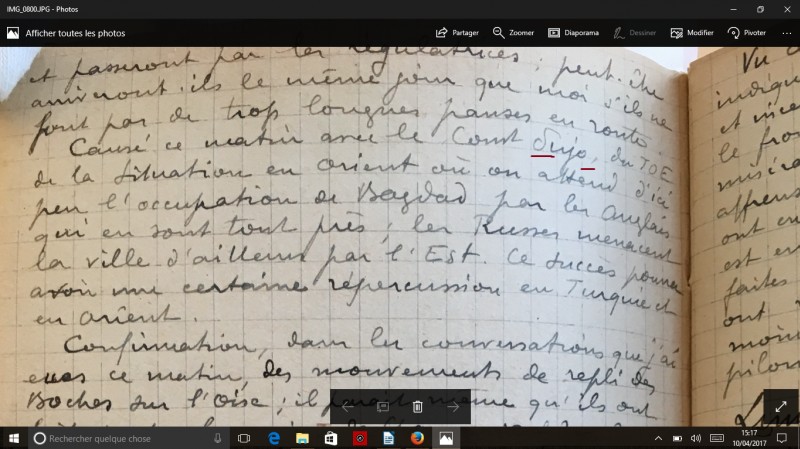 IMG_0800.JPG - Photos
Afficher toutes les photos
Partager
Zoomer
Diaporama
Dessiner
Modifier
Pivoter
et passeront par les régulatrices; peut-être
arriveront-ils le même jour que moi s'ils ne
font pas de trop longues pauses en route.
Causé ce matin avec le Comt Dujo, du TOE
de la situation en Orient où on attend d'ici
peu l'occupation de Bagdad par les Anglais
qui en sont tout près; les Russes menacent
la ville d'ailleurs par l'Est. Ce succès pourra
avoir une certaine répercussion en Turquie et
en Orient.
Confirmation, dans les conversations que j'ai
eues ce matin, des mouvements de repli des
Boches sur l'Oise; il paraît même qu'ils ont
Vu
indiqu
et
le fro
miséra
affreus
ont
est en
faites
ont
moin
pilon
Rechercher quelque chose
15:17
10/04/2017